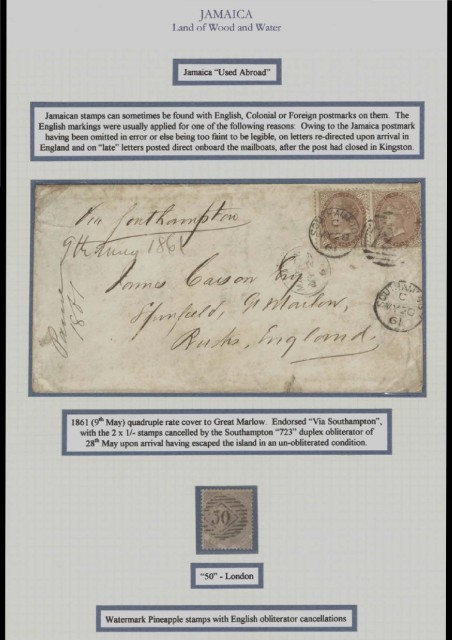 JAMAICA
Land of Wood and Water
Jamaica "Used Abroad"
Jamaican stamps can sometimes be found with English, Colonial or Foreign postmarks on them. The
English markings were usually applied for one of the following reasons: Owing to the Jamaica postmark
having been omitted in error or else being too faint to be legible, on letters re-directed upon arrival in
England and on "late" letters posted direct onboard the mailboats, after the post had closed in Kingston.
Via Southampton
9th May 1861
James Carson Esq
Spinfield, Gt Marlow,
Bucks, England
1861
SOUTHAMPTON
C
MY 28
61
1861 (9th May) quadruple rate cover to Great Marlow. Endorsed "Via Southampton",
with the 2 x 1/- stamps cancelled by the Southampton "723" duplex obliterator of
28th May upon arrival having escaped the island in an un-obliterated condition.
50
"50" - London
Watermark Pineapple stamps with English obliterator cancellations